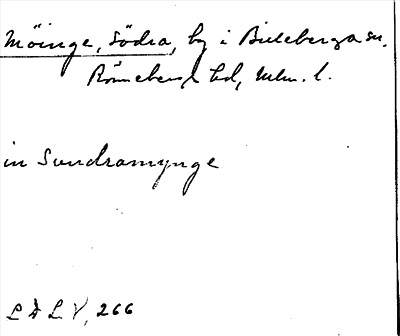 Möinge, Södra, by i Billeberga sn.
Rönnebergs hd, Mlm. l.
in Sundramynge
L D L V, 266